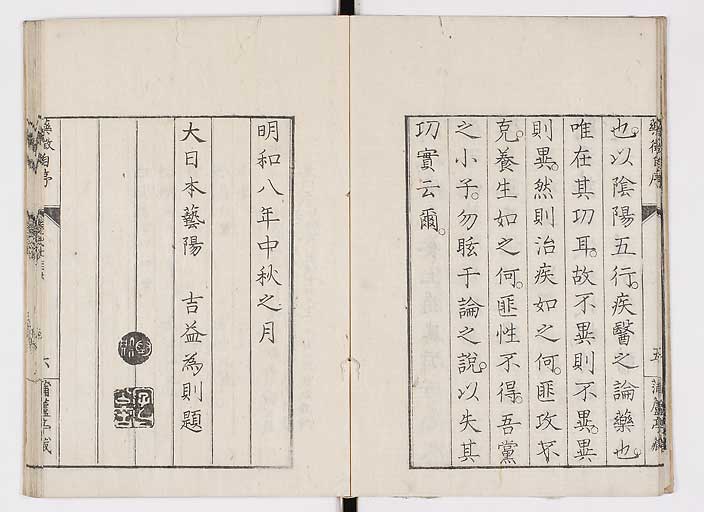 也。以陰陽五行。疾醫之論藥也。
唯在其功耳。故不異則不異。異
則異。然則治疾如之何。匪攻不
克。養生如之何。匪性不得。吾黨
之小子。勿眩于論之說。以失其
功實云爾。
藥徵自序
五
明和八年中秋之月
大日本藝陽 吉益為則題
自序
六